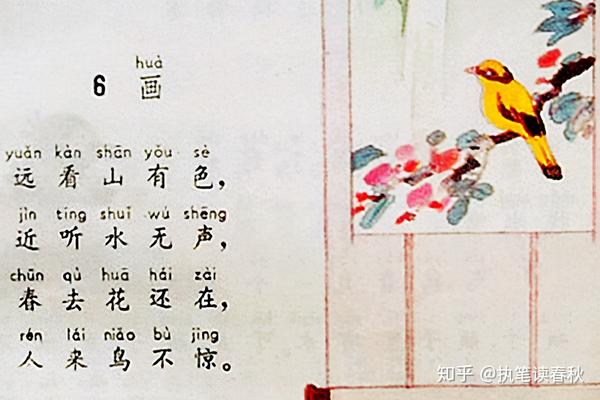 huà
6 画
yuǎn kàn shān yǒu sè
远 看 山 有 色，
jìn tīng shuǐ wú shēng
近 听 水 无 声，
chūn qù huā hái zài
春 去 花 还 在，
rén lái niǎo bù jīng
人 来 鸟 不 惊。
知乎 @执笔读春秋